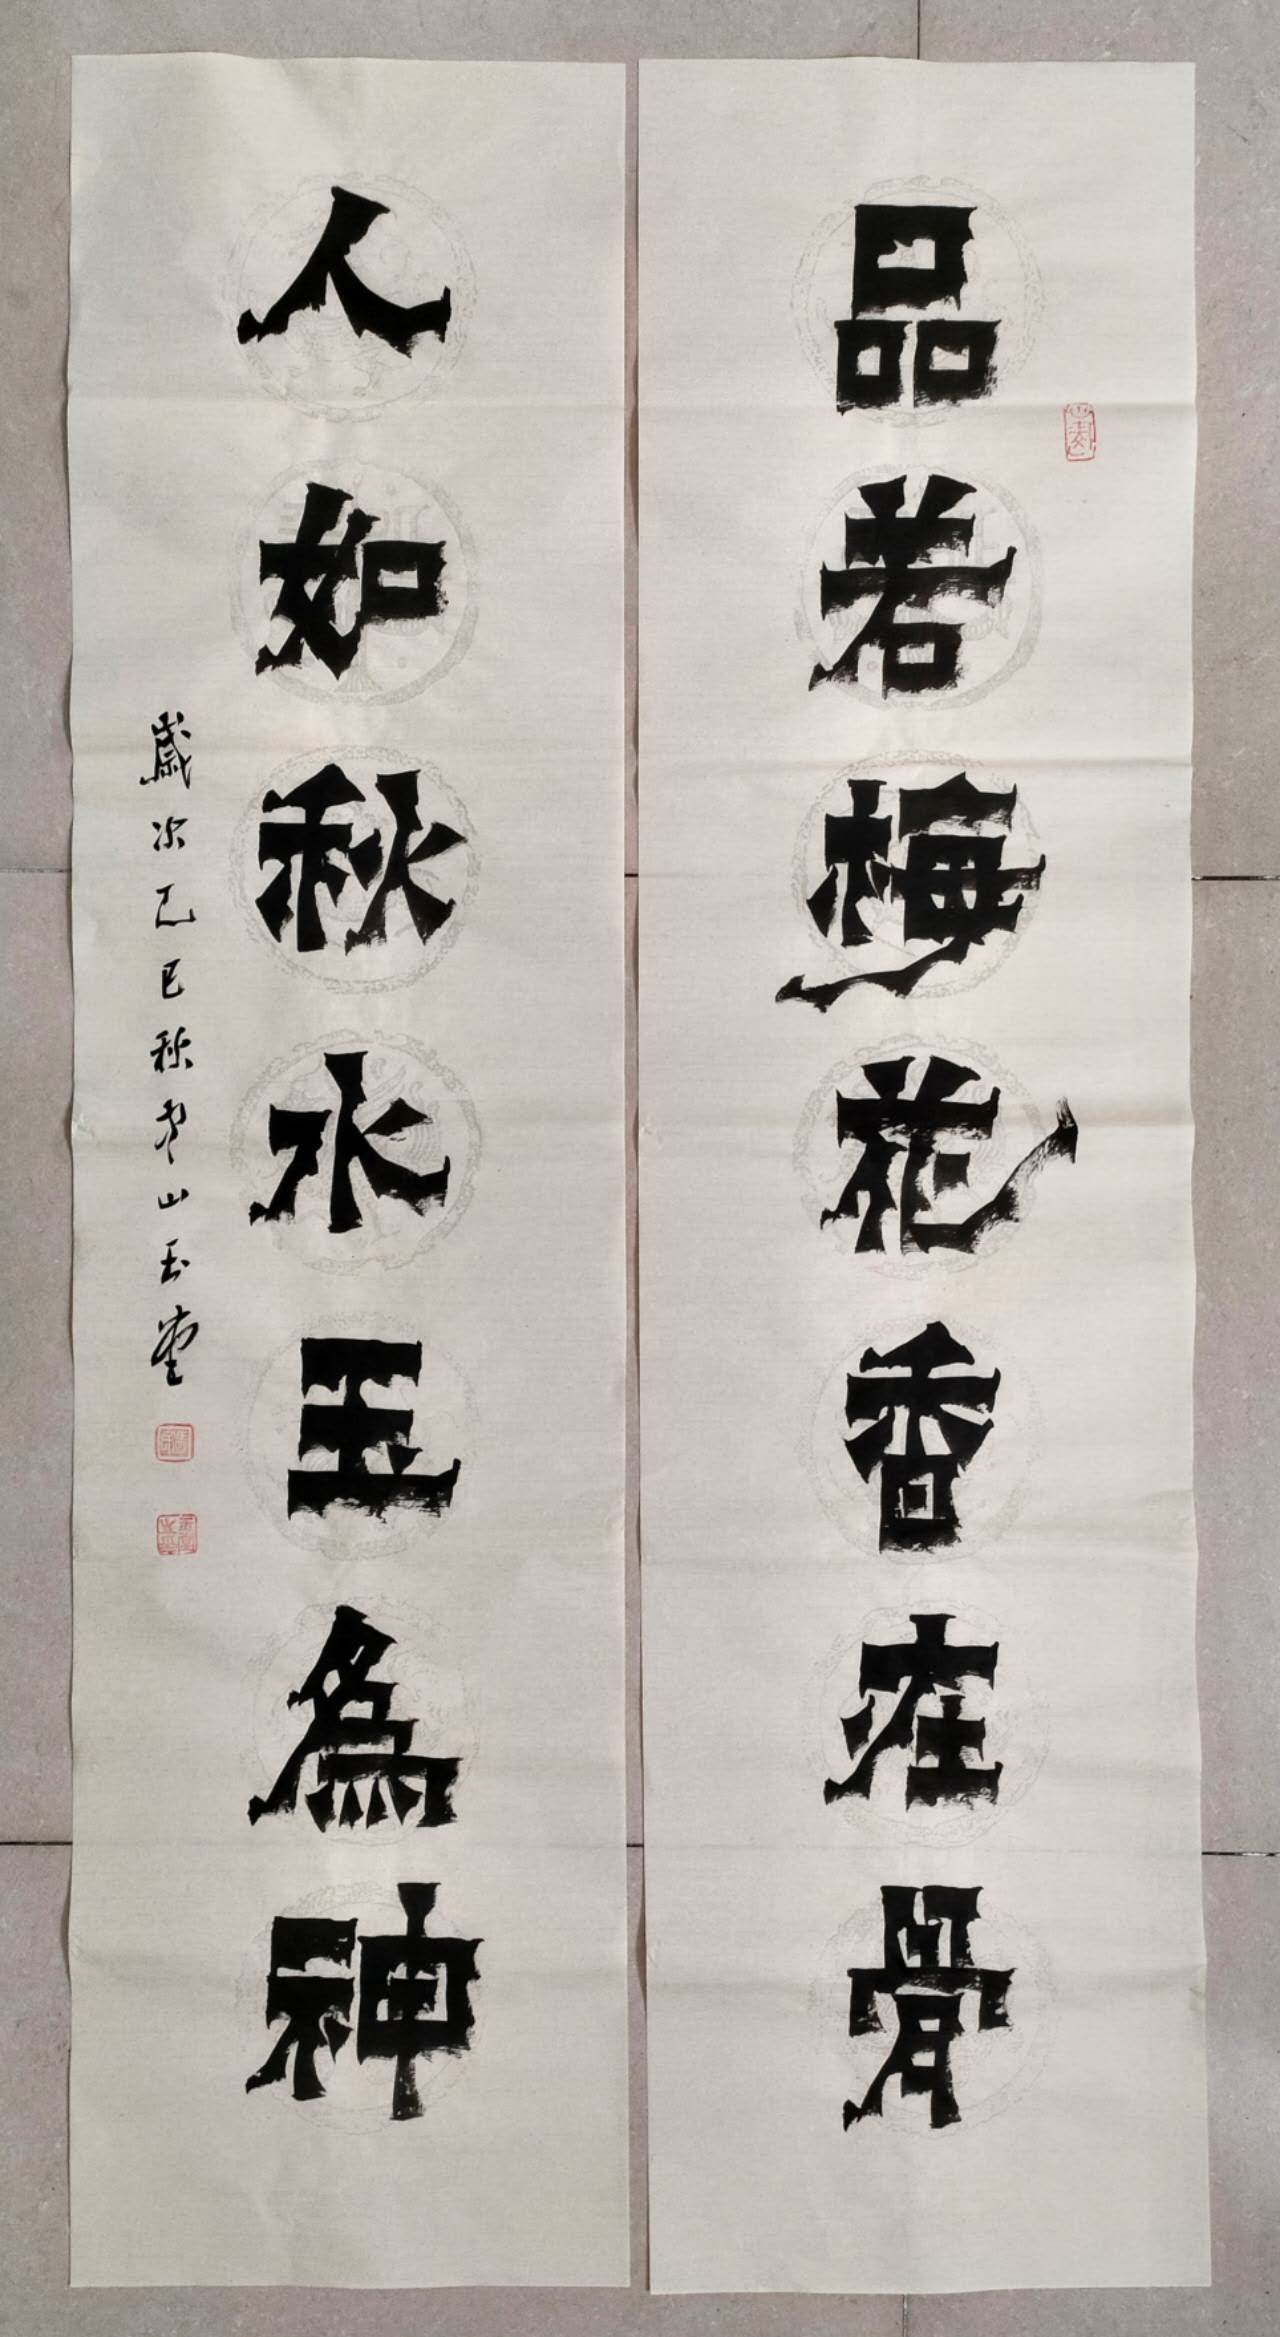 品若梅花香在骨
人如秋水玉為神
歲次乙巳秋山玉堂